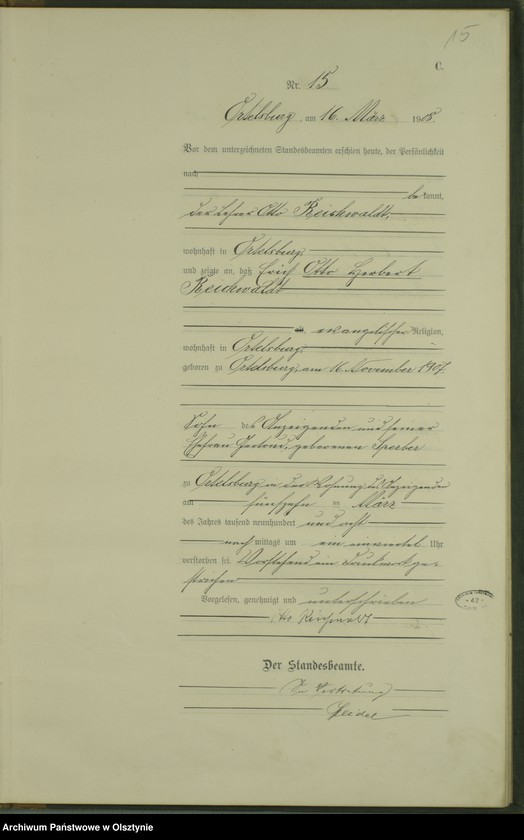 15
C.
Nr. 15
Ortelsburg, am 16. März 1908.
Vor dem unterzeichneten Standesbeamten erschien heute, der Persönlichkeit
nach
bekannt,
der Lehrer Otto Reichwaldt,
wohnhaft in Ortelsburg,
und zeigte an, daß Erich Otto Herbert
Reichwaldt
alt, evangelischer Religion,
wohnhaft in Ortelsburg,
geboren zu Ortelsburg, am 16. November 1907,
Sohn des Anzeigenden und seiner
Ehefrau geborenen Sperber
zu Ortelsburg in der Wohnung des Anzeigenden
am fünfzehn ten März
des Jahres tausend neunhundert und acht
nach mittags um ein Uhr
verstorben sei. Vorstehend ein Druckwort ge-
strichen
Vorgelesen, genehmigt und unterschrieben
Otto Reichwaldt
Der Standesbeamte.
In Vertretung
42
Archiwum Państwowe w Olsztynie